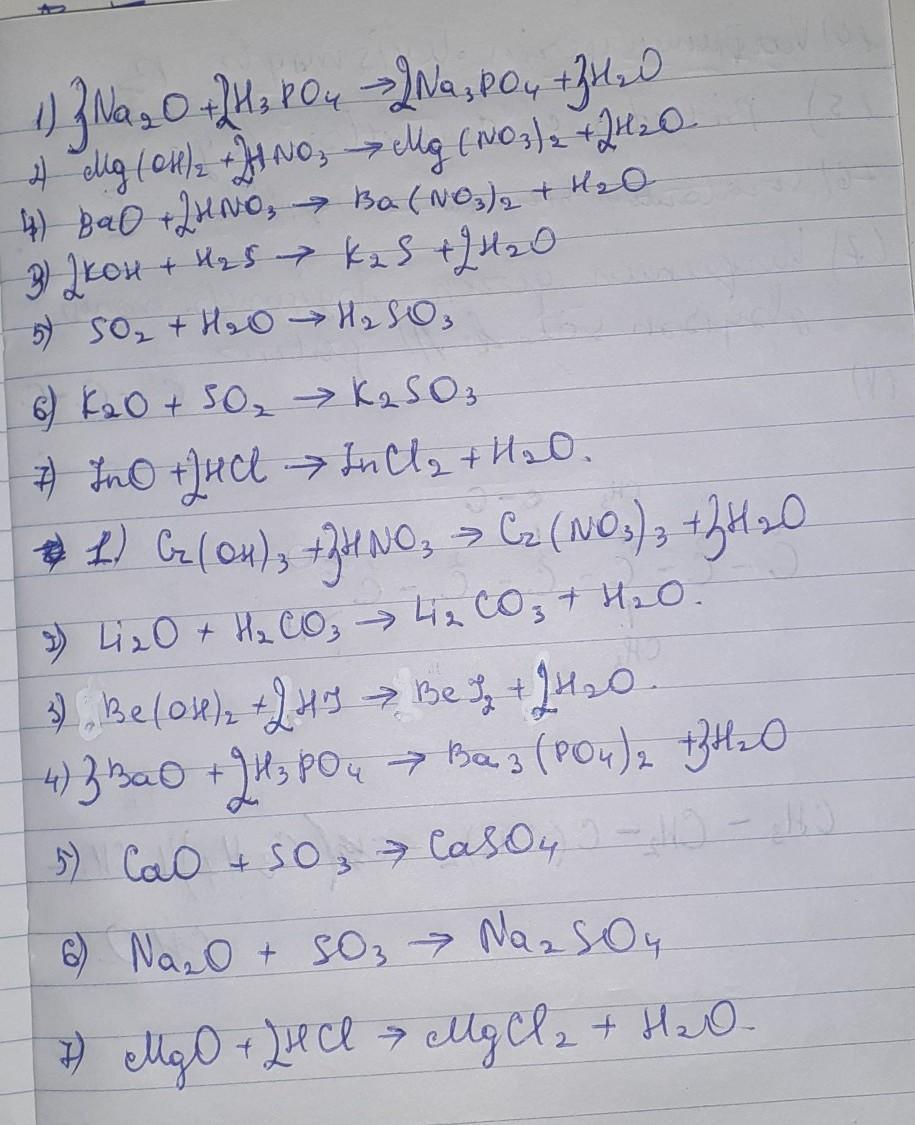 1) 3Na₂O + 2H₃PO₄ → 2Na₃PO₄ + 3H₂O
2) Mg(OH)₂ + 2HNO₃ → Mg(NO₃)₂ + 2H₂O.
4) BaO + 2HNO₃ → Ba(NO₃)₂ + H₂O
3) 2KOH + H₂S → K₂S + 2H₂O
5) SO₂ + H₂O → H₂SO₃
6) K₂O + SO₂ → K₂SO₃
7) ZnO + 2HCl → ZnCl₂ + H₂O.
1) Cr(OH)₃ + 3HNO₃ → Cr(NO₃)₃ + 3H₂O
2) Li₂O + H₂CO₃ → Li₂CO₃ + H₂O.
3) Be(OH)₂ + 2HJ → BeJ₂ + 2H₂O.
4) 3BaO + 2H₃PO₄ → Ba₃(PO₄)₂ + 3H₂O
5) CaO + SO₃ → CaSO₄
6) Na₂O + SO₃ → Na₂SO₄
7) MgO + 2HCl → MgCl₂ + H₂O.